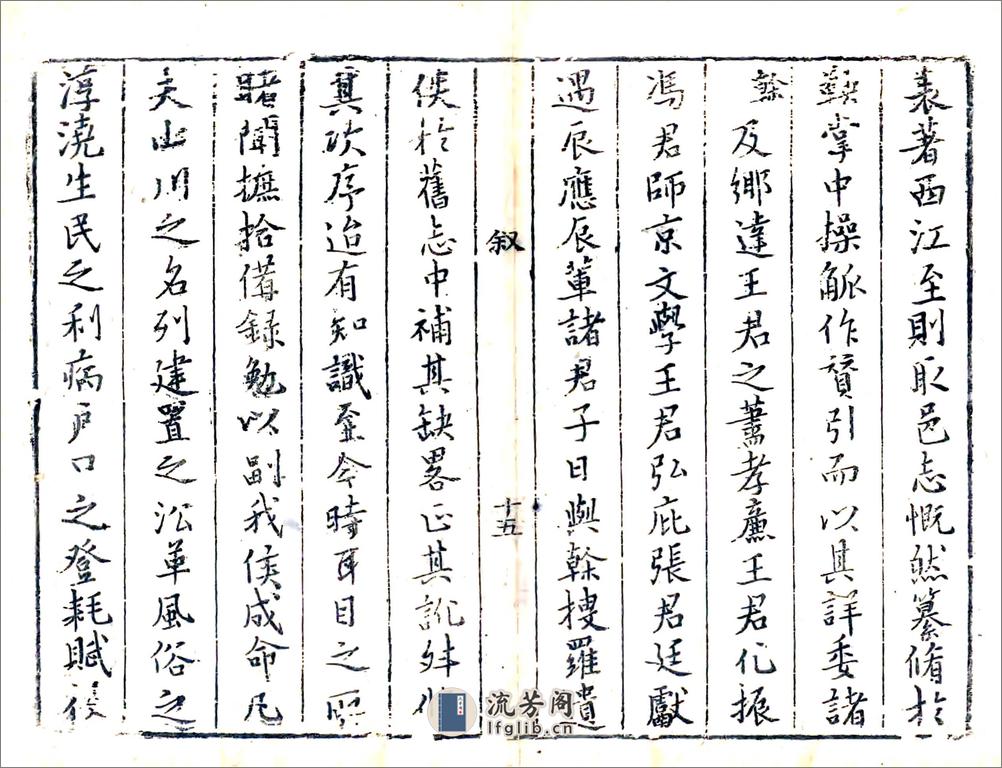 表著西江至則取邑志慨然纂脩於
鞅掌中操觚作賛引而以其詳委諸
榦及鄉達王君之藎孝亷王君化振
馮君師京文學王君弘庇張君廷獻
遇辰應辰軰諸君子日與榦搜羅遺
叙
十五
佚於舊志中補其缺畧正其訛舛
其次序迨有知識至今時耳目之所
睹聞摭拾備録勉以副我侯成命凡
夫山川之名列建置之沿革風俗之
淳澆生民之利病户口之登耗賦役
流芳阁
lfglib.cn